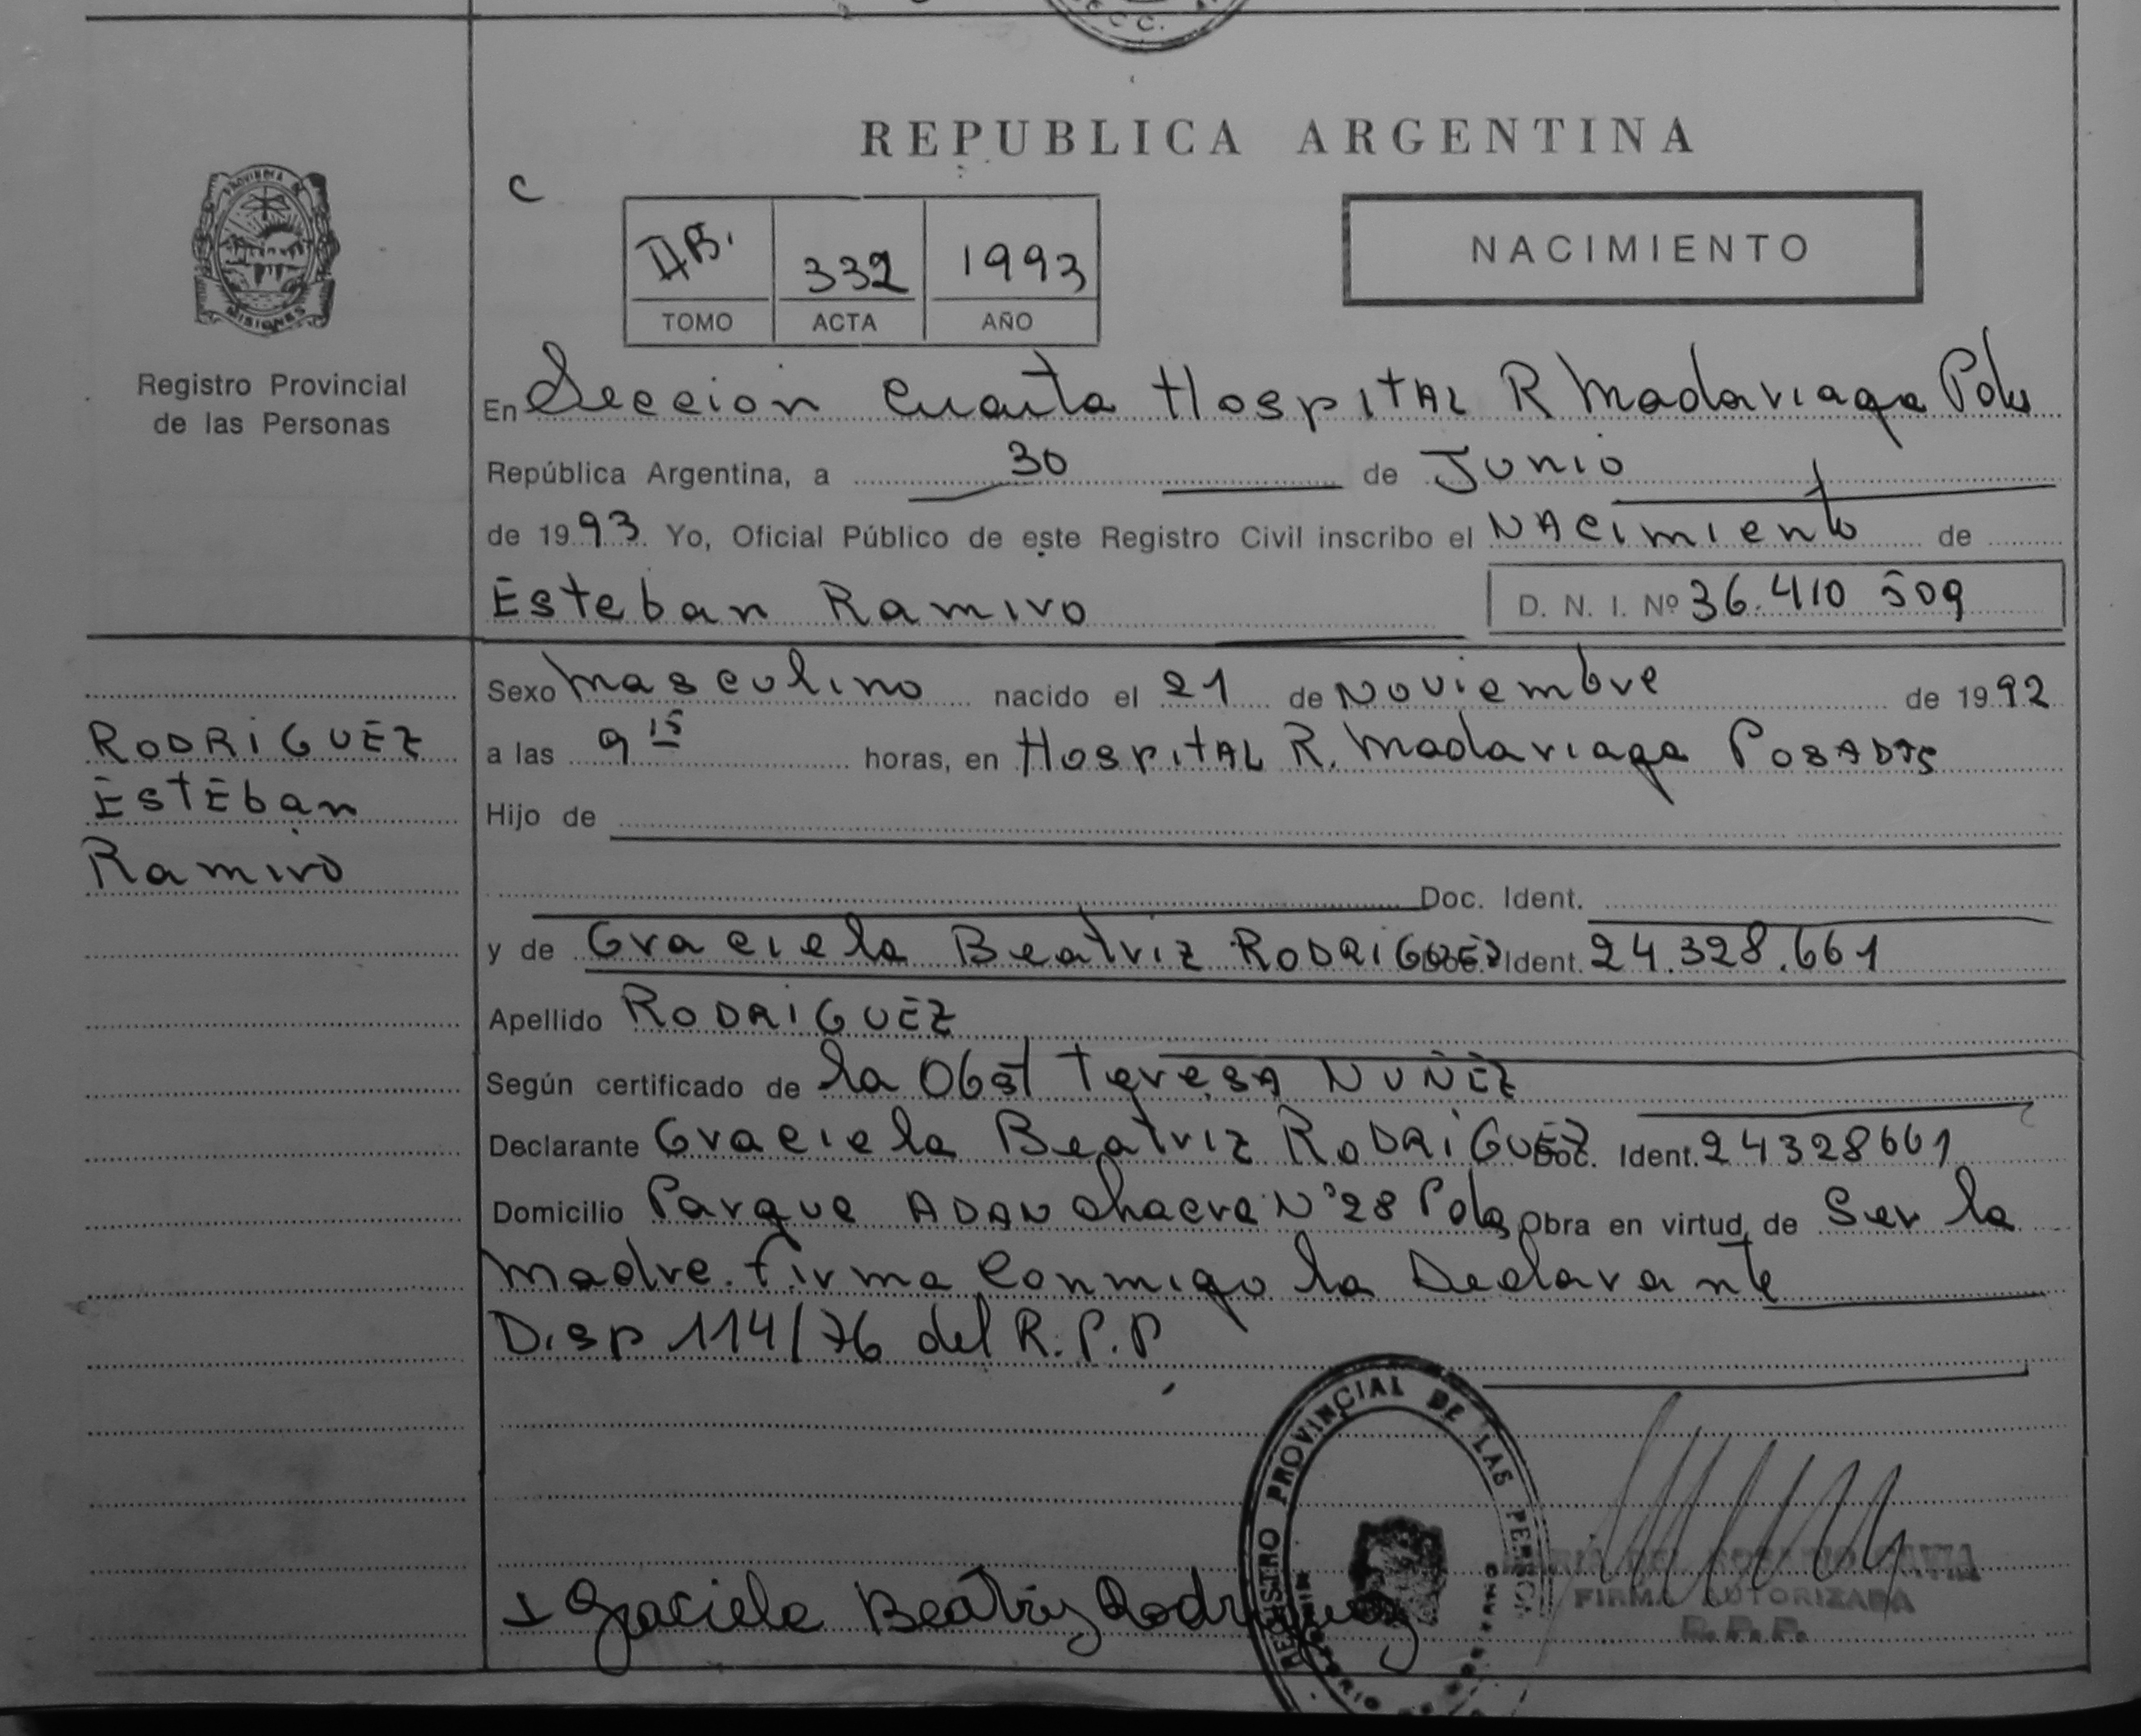 C C.
REPUBLICA ARGENTINA
PROVINCIA DE
MISIONES
Registro Provincial
de las Personas
C
332 1993
TOMO ACTA AÑO
NACIMIENTO
En Seccion Cuarta Hospital R Madariaga Pdas
República Argentina, a 30 de Junio
de 1993. Yo, Oficial Público de este Registro Civil inscribo el Nacimiento de
Esteban Ramiro D. N. I. Nº 36.410 509
RODRIGUEZ
Esteban
Ramiro
Sexo Masculino nacido el 21 de Noviembre de 1992
a las 9 15 horas, en Hospital R. Madariaga Posadas
Hijo de
Doc. Ident.
y de Graciela Beatriz RODRIGUEZ Doc. Ident. 24.328.661
Apellido RODRIGUEZ
Según certificado de la Obst Teresa NUÑEZ
Declarante Graciela Beatriz RODRIGUEZ Doc. Ident. 24328661
Domicilio Parque ADAN Chacra Nº 28 Pdas Obra en virtud de Ser la
Madre. Firma Conmigo la Declarante
Disp 114/76 del R.P.P
Graciela Beatriz Rodriguez
REGISTRO PROVINCIAL DE LAS PERSONAS
FIRMA AUTORIZADA
R.P.P.